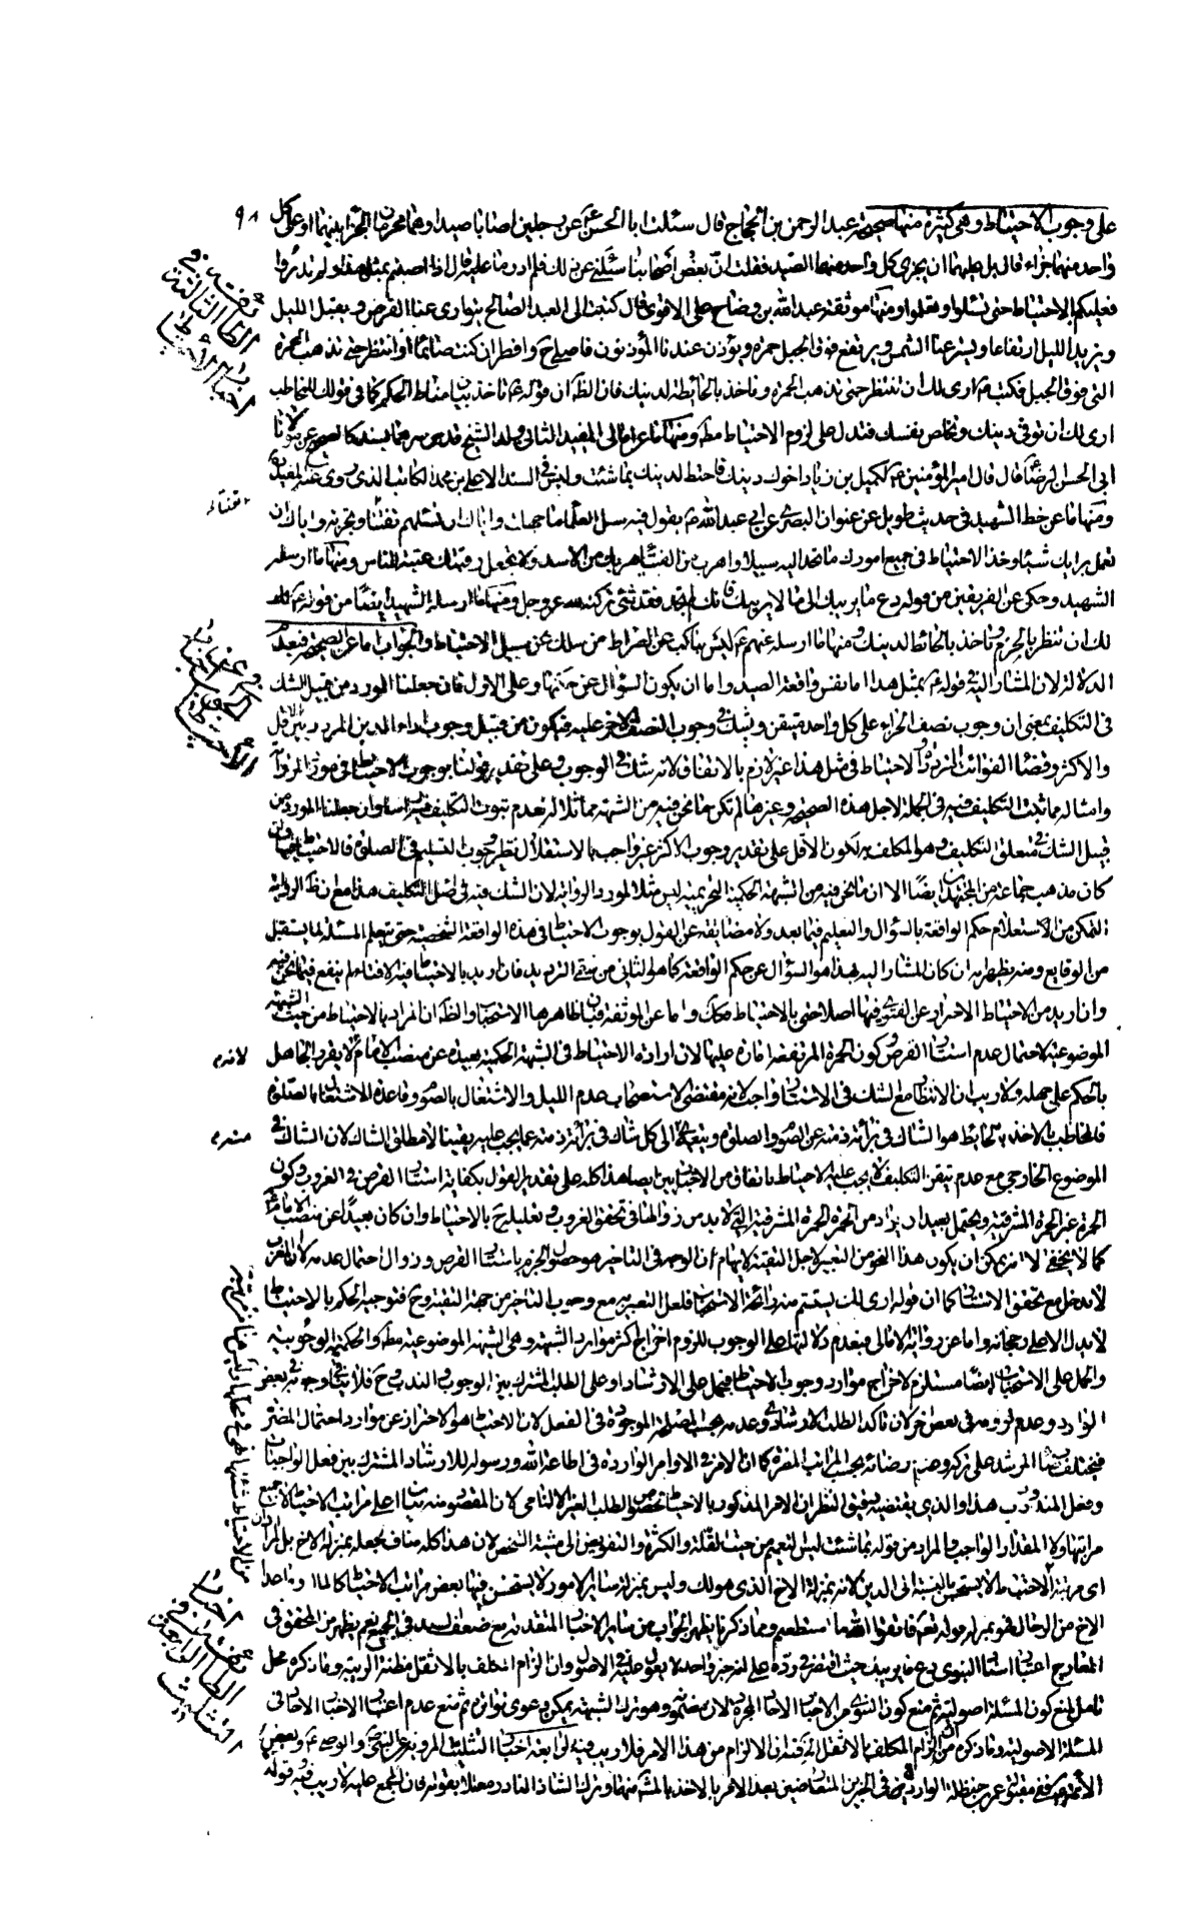 ٩٨
على وجوب الاحتياط وهى كثيرة منها صحيحة عبد الرحمن بن الحجاج قال سئلت ابا الحسن ع عن رجلين اصابا صيدا وهما محرمان الجزاء بينهما او على كل
واحد منهما جزاء قال بل عليهما ان يجزى كل واحد منهما الصيد فقلت ان بعض اصحابنا سئلنى عن ذلك فلم ادر ما عليه قال اذا اصبتم بمثل هذا ولم تدروا
فعليكم بالاحتياط حتى تسئلوا وتعلموا ومنها موثقة عبد الله بن وضاح على الاقوى قال كتبت الى العبد الصالح يتوارى عنا القرص ويقبل الليل
ويزيد الليل ارتفاعا ويستر عنا الشمس ويرتفع فوق الجبل حمرة ويؤذن عندنا المؤذنون فاصلى ح وافطر ان كنت صائما او انتظر حتى تذهب الحمرة
التى فوق الجبل فكتب ع ارى لك ان تنتظر حتى تذهب الحمرة وتاخذ بالحائطة لدينك فان الظ ان قوله ع وتاخذ بيان لمناط الحكم كما فى قولك للمخاطب
ارى لك ان توفى دينك وتخلص نفسك فتدل على لزوم الاحتياط مط ومنها ما عن امالى المفيد الثانى ولد الشيخ قدس سرهما بسند كالصحيح عن مولانا
ابى الحسن الرضا ع قال قال امير المؤمنين ع لكميل بن زياد اخوك دينك فاحتط لدينك بما شئت وليس فى السند الا على بن محمد الكاتب الذى يروى عنه المفيد
ومنها ما عن خط الشهيد فى حديث طويل عن عنوان البصرى عن ابى عبد الله ع يقول فيه سل العلماء ما جهلت واياك ان تسئلهم تعنتا وتجربة واياك ان
تعمل برايك شيئا وخذ الاحتياط فى جميع امورك ما تجد اليه سبيلا واهرب من الفتيا هربك من الاسد ولا تجعل رقبتك عتبة للناس ومنها ما ارسله
الشهيد وحكى عن الفريقين من قوله دع ما يريبك الى ما لا يريبك فانك لن تجد فقد شىء تركته لله عز وجل ومنها ما ارسله الشهيد ايضا من قوله ع
لك ان تنظر الحزم وتاخذ بالحائط لدينك ومنها ما ارسل عنهم ع ليس بناكب عن الصراط من سلك سبيل الاحتياط والجواب اما عن الصحيحة فبعدم
الدلالة لان المشار اليه فى قوله ع بمثل هذا اما نفس واقعة الصيد واما ان يكون السؤال عن حكمها وعلى الاول فان جعلنا المورد من قبيل الشك
فى التكليف بمعنى ان وجوب نصف الجزاء على كل واحد متيقن ويشك فى وجوب النصف الاخر عليه فيكون من قبيل وجوب اداء الدين المردد بين الاقل
والاكثر وقضاء الفوائت المرددة والاحتياط فى مثل هذا غير لازم بالاتفاق لانه شك فى الوجوب وعلى تقدير قولنا بوجوب الاحتياط فى مورد الرواية
وامثاله مما ثبت التكليف فيه فى الجملة لاجل هذه الصحيحة وغيرها لم يكن ما نحن فيه من الشبهة مماثلا له لعدم ثبوت التكليف فيه راسا وان جعلنا المورد من
قبيل الشك فى متعلق التكليف وهو المكلف به لكون الاقل على تقدير وجوب الاكثر غير واجب بالاستقلال نظير وجوب التسليم فى الصلوة فالاحتياط هنا وان
كان مذهب جماعة من المجتهدين ايضا الا ان ما نحن فيه من الشبهة الحكمية التحريمية ليس مثلا لمورد الرواية لان الشك فيه فى اصل التكليف هذا مع ان ظ الرواية
التمكن من الاستعلام حكم الواقعة بالسؤال والتعليم فيما بعد ولا مضايقة عن القول بوجوب الاحتياط فى هذه الواقعة الشخصية حتى يتعلم المسئلة لما يستقبل
من الوقايع ومنه يظهر انه ان كان المشار اليه بهذا هو السؤال عن حكم الواقعة كما هو الثانى من شقى الترديد فان اريد بالاحتياط فيه الافتاء لم ينفع فيما نحن فيه
وان اريد من الاحتياط الاحتراز عن الفتوى فيها اصلا حتى بالاحتياط فكك واما عن الموثقة فبان ظاهرها الاستحباب والظ ان المراد بالاحتياط من حيث الشبهة
الموضوعية لاحتمال عدم استتار القرص وكون الحمرة المرتفعة امارة عليها لان ارادة الاحتياط فى الشبهة الحكمية بعيدة عن منصب الامام ع لانه لا يقرر الجاهل
بالحكم على جهله ولا ريب ان الانتظار مع الشك فى الاستتار واجب لانه مقتضى استصحاب عدم الليل والاشتغال بالصوم وقاعدة الاشتغال بالصلوة
فالمخاطب بالاخذ بالحائط هو الشاك فى برائة ذمته عن الصوم والصلوة ويتعدى الى كل شاك فى برائة ذمته عما يجب عليه يقينا لا مطلق الشاك لان الشاك فى
الموضوع الخارجى مع عدم تيقن التكليف لا يجب عليه الاحتياط باتفاق من الاخباريين ايضا هذا كله على تقدير القول بكفاية استتار القرص فى الغروب وكون
الحمرة غير الحمرة المشرقية ويحتمل بعيدا ان يراد من الحمرة الحمرة المشرقية التى لا بد من زوالها فى تحقق الغروب وتعليله ح بالاحتياط وان كان بعيدا عن منصب الامام ع
كما لا يخفى الا انه يمكن ان يكون هذا النحو من التعبير لاجل التقية لايهام ان الوجه فى التاخير هو حصول الجزم باستتار القرص وزوال احتمال عدمه لا ان المغرب
لا يدخل مع تحقق الاستتار كما ان قوله ارى لك يستشم منه رائحة الاستحباب فلعل التعبير به مع وجوب التاخير من جهة التقية وح فتوجيه الحكم بالاحتياط
لا يدل الا على رجحانه واما عن رواية الامالى فبعدم دلالتها على الوجوب للزوم اخراج اكثر موارد الشبهة وهى الشبهة الموضوعية مط والحكمية الوجوبية
والحمل على الاستحباب ايضا مستلزم لاخراج موارد وجوب الاحتياط فيحمل على الارشاد او على الطلب المشترك بين الوجوب والندب ح فلا ينافى وجوبه فى بعض
الموارد وعدم لزومه فى بعض اخر لان تاكد الطلب الارشادى وعدمه بحسب المصلحة الموجودة فى الفعل لان الاحتياط هو الاحتراز عن موارد احتمال المضرة
فيختلف رضا المرشد بتركه وعدم رضائه بحسب المراتب المضرة كما ان الامر فى الاوامر الواردة فى اطاعة الله ورسوله للارشاد المشترك بين فعل الواجبات
وفعل المندوب هذا والذى يقتضيه دقيق النظر ان الامر المذكور بالاحتياط لخصوص الطلب الغير الالزامى لان المقصود منه بيان اعلى مراتب الاحتياط لا جميع
مراتبها ولا المقدار الواجب والمراد من قوله بما شئت ليس التعميم من حيث القلة والكثرة والتفويض الى مشية الشخص لان هذا كله مناف لجعله بمنزلة الاخ بل المراد ان
اى مرتبة الاحتياط لا يستحسن بالنسبة الى الدين لانه بمنزلة الاخ الذى هو لك وليس بمنزلة ساير الامور لا يستحسن فيها بعض مراتب الاحتياط كالمال وما عدا
الاخ من الرجال فهو بمنزلة قوله تعه فاتقوا الله ما استطعتم ومما ذكرنا يظهر الجواب عن ساير الاخبار المتقدمة مع ضعف السند فى الجميع نعم يظهر من المحقق فى
المعارج اعتبار اسناد النبوى دع ما يريبك حيث اقتصر فى رده على انه خبر واحد لا يعول عليه فى الاصول وان الزام المكلف بالاثقل مظنة الريبة وما ذكره محل
تامل لمنع كون المسئلة اصولية ثم منع كون النبوى من الاخبار الاحاد المجردة لان مضمونه وهو ترك الشبهة يمكن دعوى تواتره ثم منع عدم اعتبار الاخبار الاحاد فى
المسئلة الاصولية وما ذكره من ان الزام المكلف بالاثقل اه فيه ان الالزام من هذا الامر فلا ريب فيه الرابعة اخبار التثليث المروية عن النبى ص والوصى ع وبعض
الائمة ع ففى مقبولة عمر بن حنظلة الواردة فى الخبرين المتعارضين بعد الامر بالاخذ بالمشهور منهما وترك الشاذ النادر معللا بقوله فان المجمع عليه لا ريب فيه قوله
الطائفة الثالثة
اخبار الاحتياط
الاحتياط
لانه ع
منه ع
اخبار
الطائفة الرابعة
التثليث